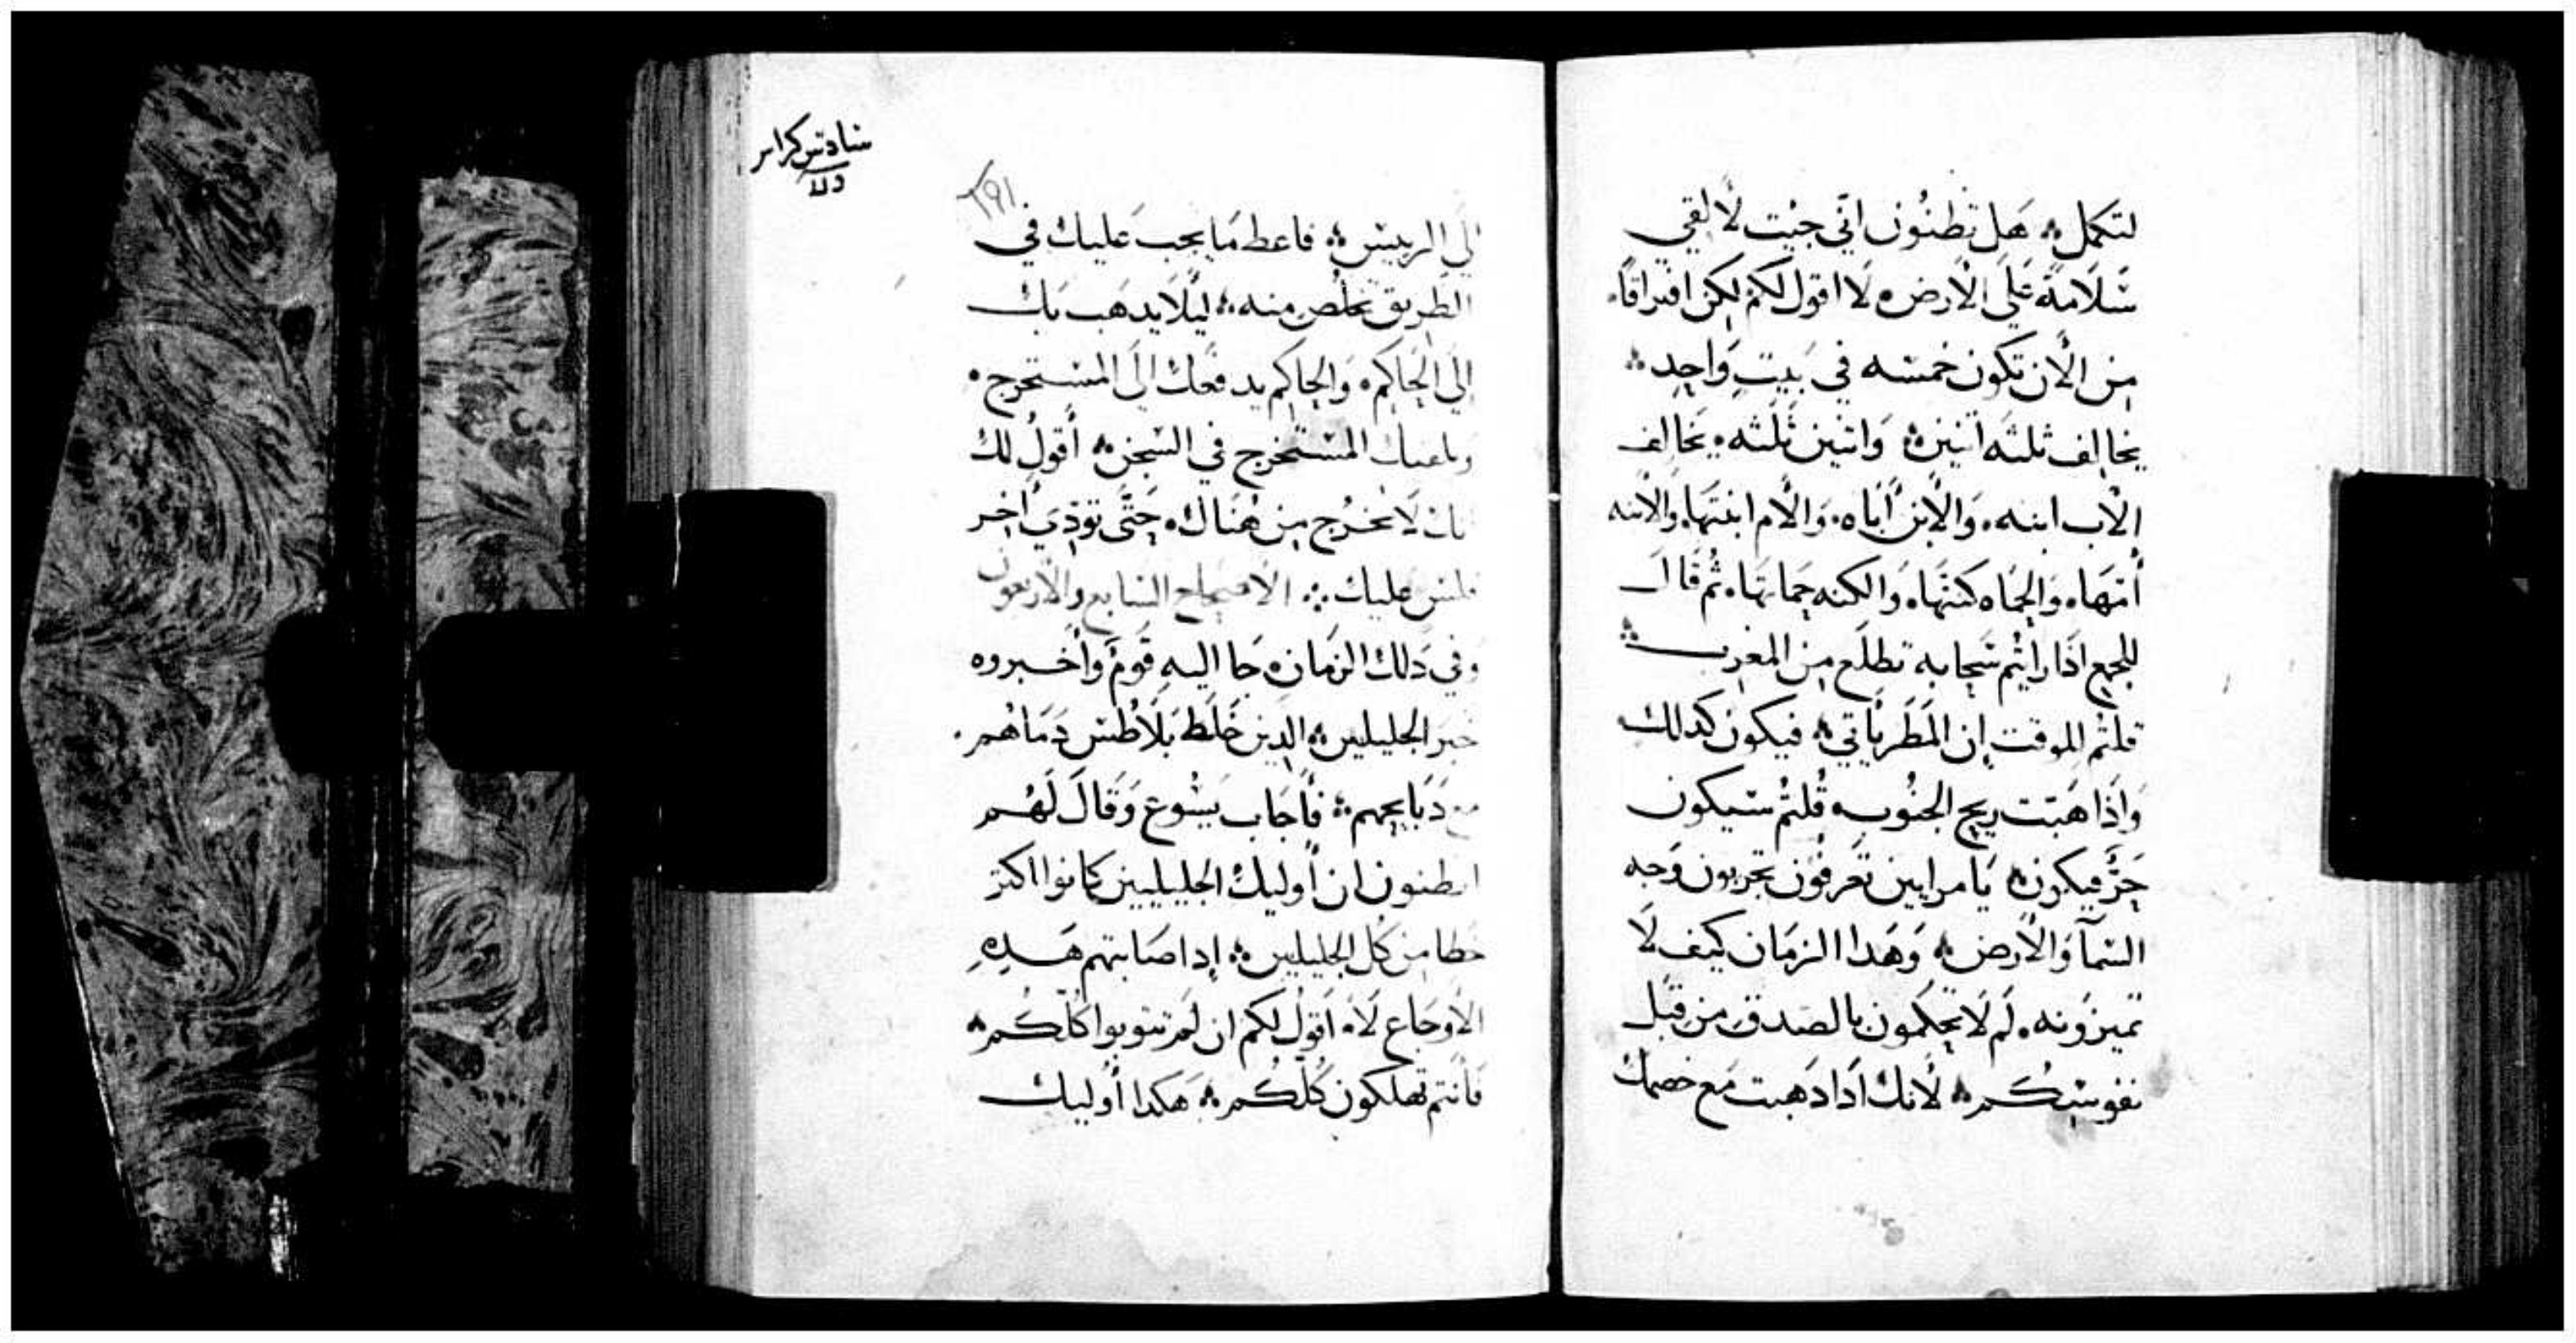 لتكمل ؞ هَل تظنُون انّي جيْت لأ لقي
سَلَامةً عَلَى الأرض ۰ لَا اقول لكمْ لكِن افتراقًا ۰
مِن الأن تكون خمسه في بَيتٍ وَاحِدٍ ؞
يخالِف ثلثَه اثنين ؞ وَاثنين ثَلثه ۰ يخَالِف
الأب ابنه ۰ وَالأبن أبَاه ۰ وَالأم ابنتَهَا ۰ وَالأبنه
أُمّهَا ۰ وَالحَمَاه كنتَهَا ۰ وَالكنه حَمَاتهَا ۰ ثُم قَالَ
للجمِع اذَا رَايتُم سَحَابه تطلَع مِن المغرِب ؞
قلتُم للوقت إن المَطَر يَاتي ؞ فيكون كدلك
وَاذَا هَبّت ريح الجنُوب ۰ قُلتُم سَيكون
حَرّ فيكون ؞ يَا مرايين تعَرفُون تجربون وَجه
السّمآ وَالأرض ؞ وَهَدا الزمَان كيَف لَا
تميزوُنه ۰ لَم لَا تحكمون بالصّدق مِن قِبَل
نفوسِكُم ؞ لأنك اذَا دَهبت مَع خصمك
سَادس كراس
لوقا
٢٩١
إلَي الرييس ؞ فاعط مَا يجب عَليك في
الطريق تخلصْ منه ؞ ليَلَا يدهَب بَك
إلَى الحَاكم ۰ وَالحَاكم يدفَعك الَى المسَتخرج ۰
ويلقيك المسَتخرج في السّجن ؞ أقولُ لك
انك لَا تخرُج مِن هُنَاك ۰ حَتّى تودّي أخِر
فلس عَليك ؞ الأصحاح السَابع والأربعون
وَفي دَلك الزمَان ۰ جَا اليهِ قَومٌ وَأخبروه
خبَر الجليليين ؞ الدِين خَلَط بَلَاطُس دمَاهُم ۰
مع دَبَايحِهم ؞ فأجَاب يَسُوع وَقَالَ لَهُم
اتظنون ان أوليك الجليليين كانوا اكتر
خطا من كُل الجليليين ؞ إدا صَابتهم هَدِهِ
الأوجَاع لَا ؞ اقول لكم ان لَم تتوبوا كُلّكُم ؞
فَأنتم تهلكون كُلّكُم ؞ هَكدا أوليك